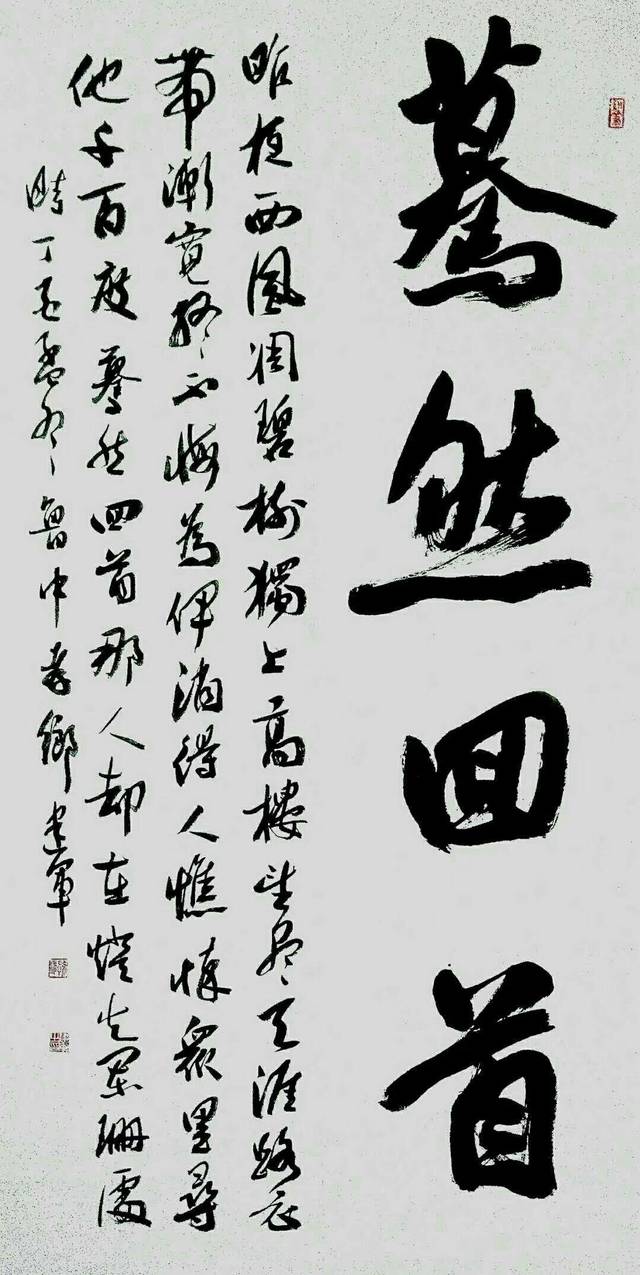 驀然回首
昨夜西風凋碧樹獨上高樓望尽天涯路衣
帶漸寬終不悔為伊消得人憔悴眾里尋
他千百度驀然回首那人却在燈火闌珊處
時丁酉孟冬魯中孝鄉建軍